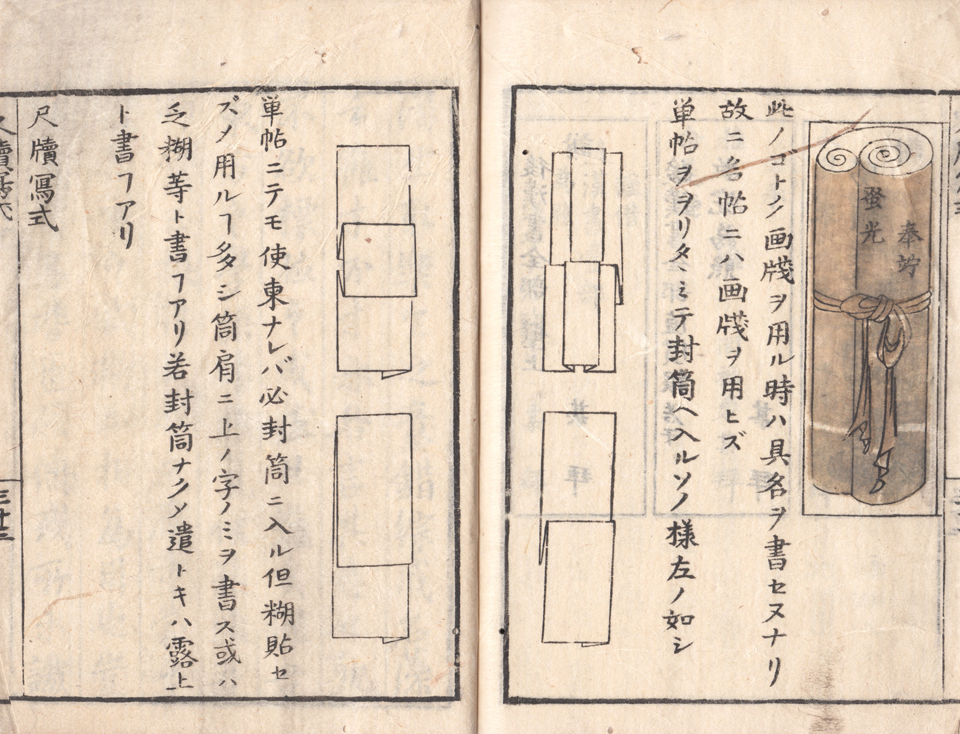 奉竚
発光
此ノゴトク画牋ヲ用ル時ハ具名ヲ書セヌナリ
故ニ名帖ニハ画牋ヲ用ヒズ
単帖ヲヲリタヽミテ封筒ヘ入ルソノ様左ノ如シ
単帖ニテモ使東ナレバ必封筒ニ入ル但糊貼セ
ズメ用ルヿ多シ筒肩ニ上ノ字ノミヲ書ス或ハ
乏糊等ト書フアリ若封筒ナクメ遣トキハ露上
ト書フアリ
尺牘寫式
三十三